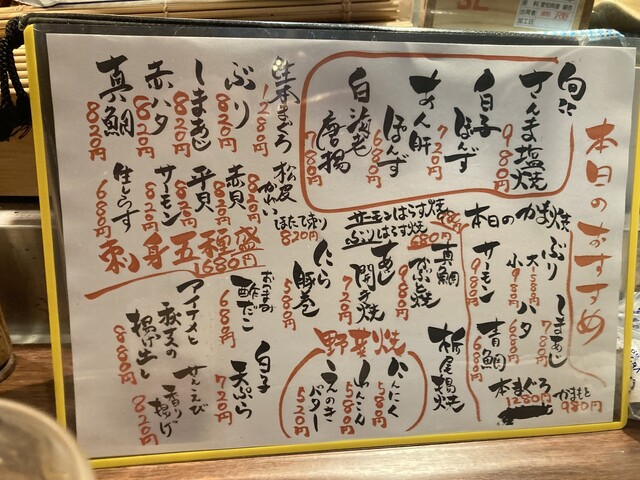 本日のおすすめ
旬
さんま塩焼
980円
白子
ぽんず
720円
あん肝
ぽんず
680円
白海老
唐揚
780円
生本まぐろ
1280円
ぶり
820円
しまあじ
820円
赤ハタ
820円
真鯛
820円
松皮
かれい
ほたて刺
820円
赤貝
820円
平貝
820円
サーモン
820円
生しらす
680円
刺身五種盛
1680円
本日のかま焼
ぶり
大・580円
小・
しまあじ
780円
サーモン
980円
ハタ
680円
青鯛
680円
本まぐろ
1280円
かまもと
980円
サーモンはらす焼
ぶりはらす焼
680円
真鯛
かぶと焼
980円
あじ
開き焼
720円
にら
豚巻
580円
栃尾揚焼
野菜焼
にんにく
580円
れんこん
580円
えのき
バター
520円
おつまみ
酢だこ
680円
白子
天ぷら
720円
アイナメと
秋茄子の
揚げ出し
880円
サルエビ
香り揚げ
820円